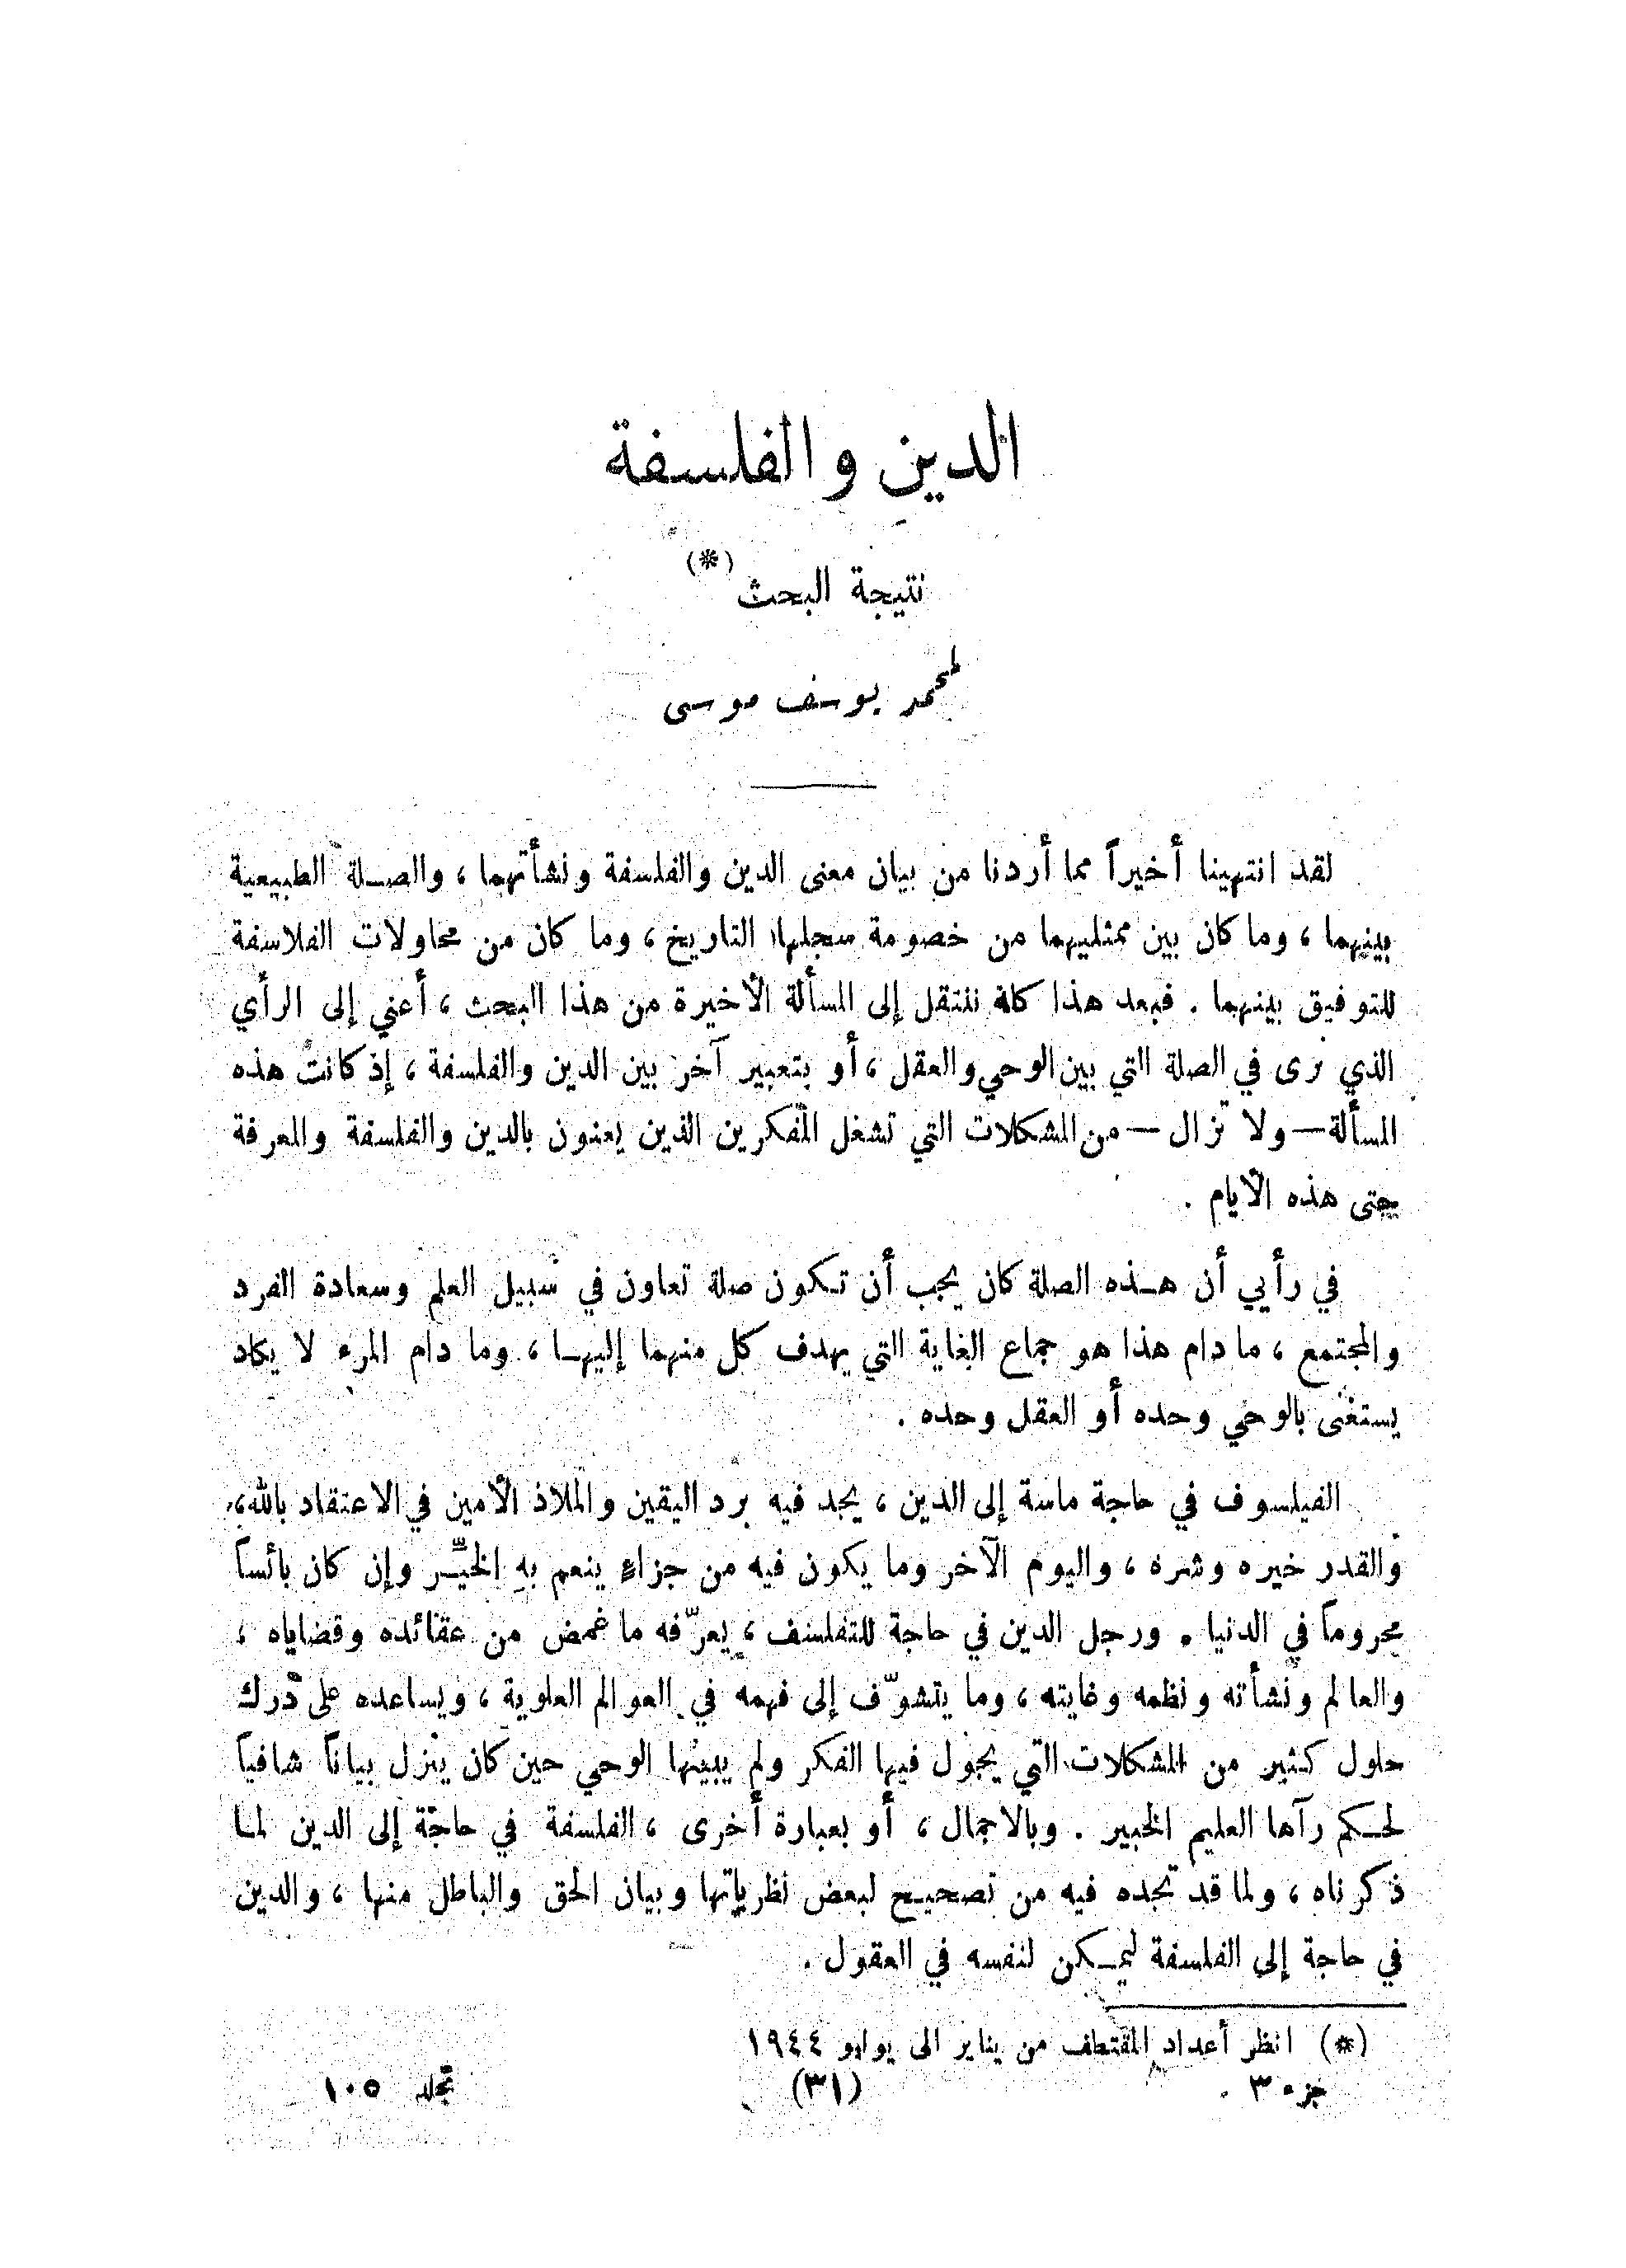 الدين والفلسفة
نتيجة البحث (*)
لمحمد يوسف موسى
لقد انتهينا أخيراً مما أردنا من بيان معنى الدين والفلسفة ونشأتهما ، والصـلة الطبيعية
بينهما ، وما كان بين ممثليهما من خصومة سجلها التاريخ ، وما كان من محاولات الفلاسفة
للتوفيق بينهما . فبعد هذا كله ننتقل إلى المسألة الأخيرة من هذا البحث ، أعني إلى الرأي
الذي نرى في الصلة التي بين الوحي والعقل ، أو بتعبير آخر بين الدين والفلسفة ، إذ كانت هذه
المسألة — ولا تزال — من المشكلات التي تشغل المفكرين الذين يعنون بالدين والفلسفة والمعرفة
حتى هذه الأيام .
في رأيي أن هـذه الصلة كان يجب أن تـكون صلة تعاون في سبيل العلم وسعادة الفرد
والمجتمع ، ما دام هذا هو جماع الغاية التي يهدف كل منهما إليهـا ، وما دام المرء لا يكاد
يستغنى بالوحي وحده أو العقل وحده .
الفيلسوف في حاجة ماسة إلى الدين ، يجد فيه برد اليقين والملاذ الأمين في الاعتقاد بالله ،
والقدر خيره وشره ، واليوم الآخر وما يكون فيه من جزاءٍ ينعم بهِ الخيِّـر وإن كان بائساً
محروماً في الدنيا . ورجل الدين في حاجة للتفلسف ، يعرّفه ما غمض من عقائده وقضاياه ،
والعالم ونشأته ونظمه وغايته ، وما يتشوّف إلى فهمه في العوالم العلوية ، ويساعده على دَرك
حلول كثير من المشكلات التي يجول فيها الفكر ولم يبينها الوحي حين كان ينزل بياناً شافياً
لحـكم رآها العليم الخبير . وبالاجمال ، أو بعبارة أخرى ، الفلسفة في حاجة إلى الدين لمـا
ذكرناه ، ولما قد تجده فيه من تصحيـح لبعض نظرياتها وبيان الحق والباطل منها ، والدين
في حاجة إلى الفلسفة ليمـكن لنفسه في العقول .
(*) انظر أعداد المقتطف من يناير الى يوليو ١٩٤٤
جزء ٣ (٣١) مجلد ١٠٥